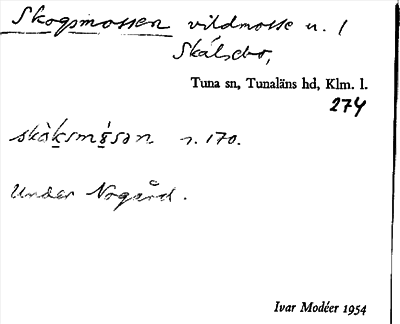 Skogsmossen vildmosse u. l
Skálsbo,
Tuna sn, Tunaläns hd, Klm. l.
274
skòksmósən s. 170.
Under Norgård.
Ivar Modéer 1954